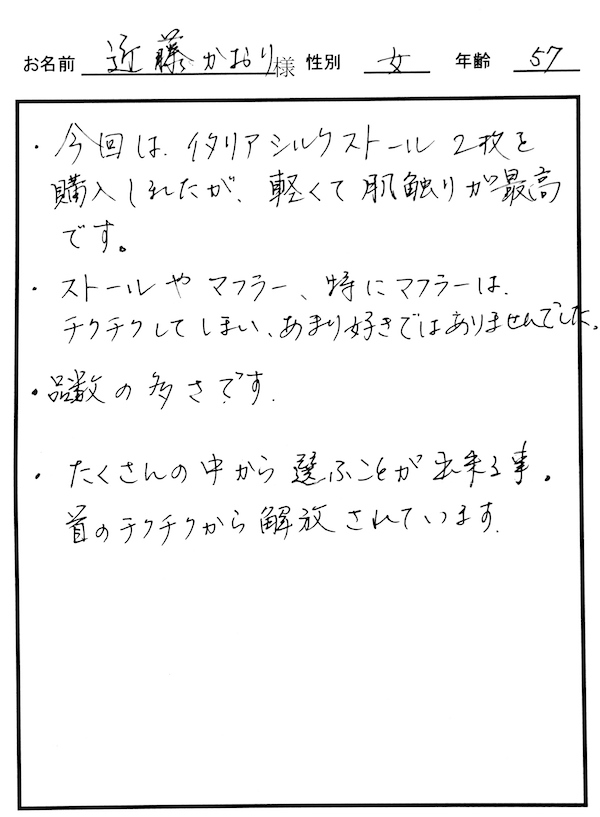 お名前 近藤かおり様 性別 女 年齢 57
・今回は、イタリアシルクストール 2枚を
購入しましたが、軽くて肌触りが最高
です。
・ストールやマフラー、特にマフラーは、
チクチクしてしまい、あまり好きではありませんでした。
・品数の多さです.
・たくさんの中から選ぶことが出来る事。
首のチクチクから解放されています.